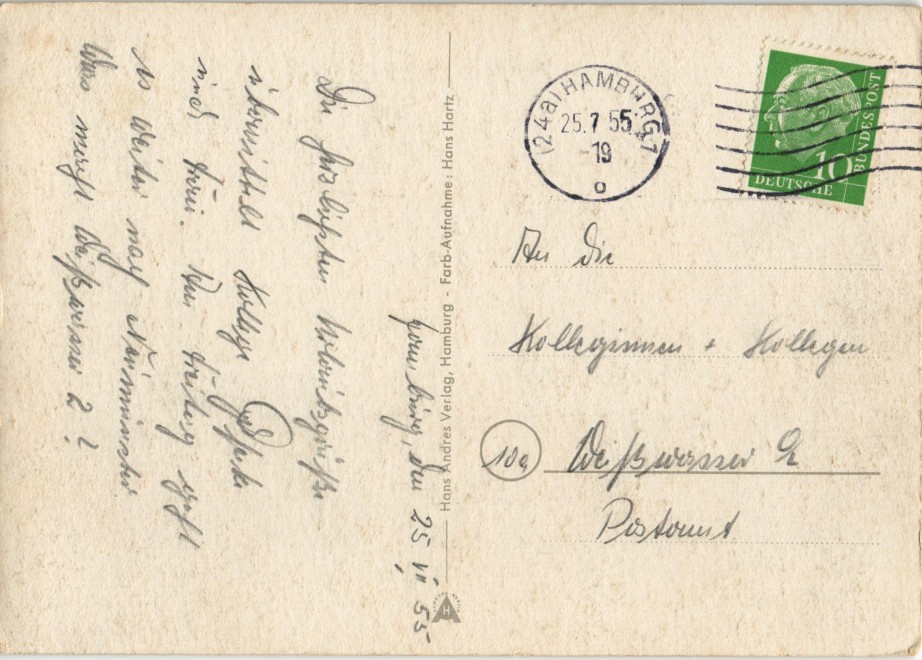 Hamburg, den 25. VII. 55
Die herzlichsten Urlaubsgrüße
übermittelt Kollege
und Frau. Am Freitag geht
es weiter nach Neumünster
Was macht Weißwasser 2?
Hans Andres Verlag, Hamburg - Farb-Aufnahme: Hans Hartz
H
(24a) HAMBURG 1
25.7.55
-19
o
10
DEUTSCHE
BUNDESPOST
An die
Kolleginnen + Kollegen
10a Weißwasser OL
Postamt